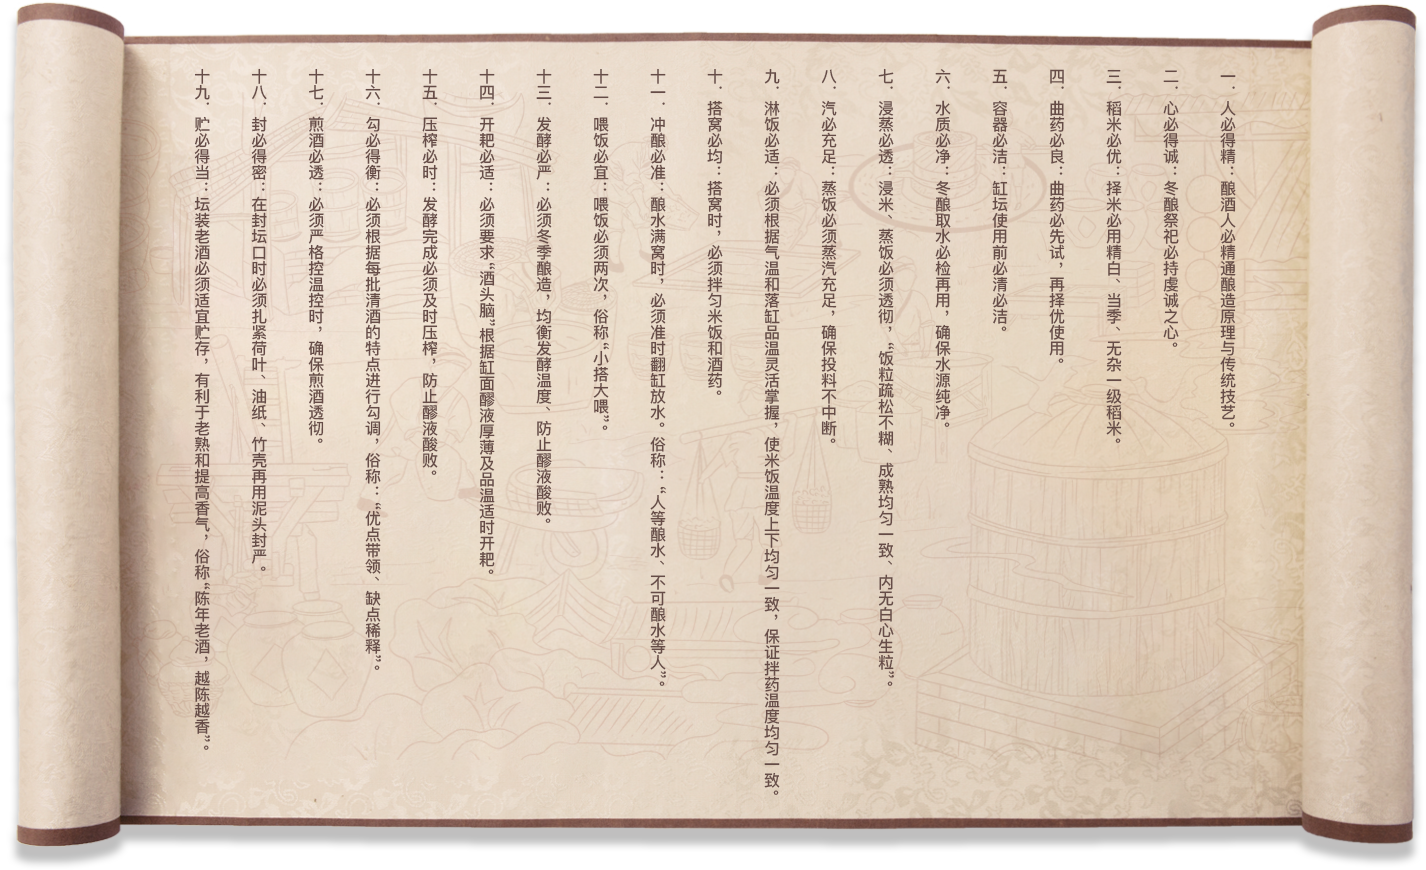 一．人必得精：酿酒人必精通酿造原理与传统技艺。
二．心必得诚：冬酿祭祀必持虔诚之心。
三．稻米必优：择米必用精白、当季、无杂一级稻米。
四．曲药必良：曲药必先试，再择优使用。
五．容器必洁：缸坛使用前必清必洁。
六．水质必净：冬酿取水必检再用，确保水源纯净。
七．浸蒸必透：浸米、蒸饭必须透彻，“饭粒疏松不糊、成熟均匀一致、内无白心生粒”。
八．汽必充足：蒸饭必须蒸汽充足，确保投料不中断。
九．淋饭必适：必须根据气温和落缸品温灵活掌握，使米饭温度上下均匀一致，保证拌药温度均匀一致。
十．搭窝必均：搭窝时，必须拌匀米饭和酒药。
十一．冲酿必准：酿水满窝时，必须准时翻缸放水。俗称：“人等酿水、不可酿水等人”。
十二．喂饭必宜：喂饭必须两次，俗称“小搭大喂”。
十三．发酵必严：必须冬季酿造，均衡发酵温度、防止醪液酸败。
十四．开耙必适：必须要求“酒头脑”根据缸面醪液厚薄及品温适时开耙。
十五．压榨必时：发酵完成必须及时压榨，防止醪液酸败。
十六．勾必得衡：必须根据每批清酒的特点进行勾调，俗称：“优点带领、缺点稀释”。
十七．煎酒必透：必须严格控温控时，确保煎酒透彻。
十八．封必得密：在封坛口时必须扎紧荷叶、油纸、竹壳再用泥头封严。
十九．贮必得当：坛装老酒必须适宜贮存，有利于老熟和提高香气，俗称“陈年老酒，越陈越香”。